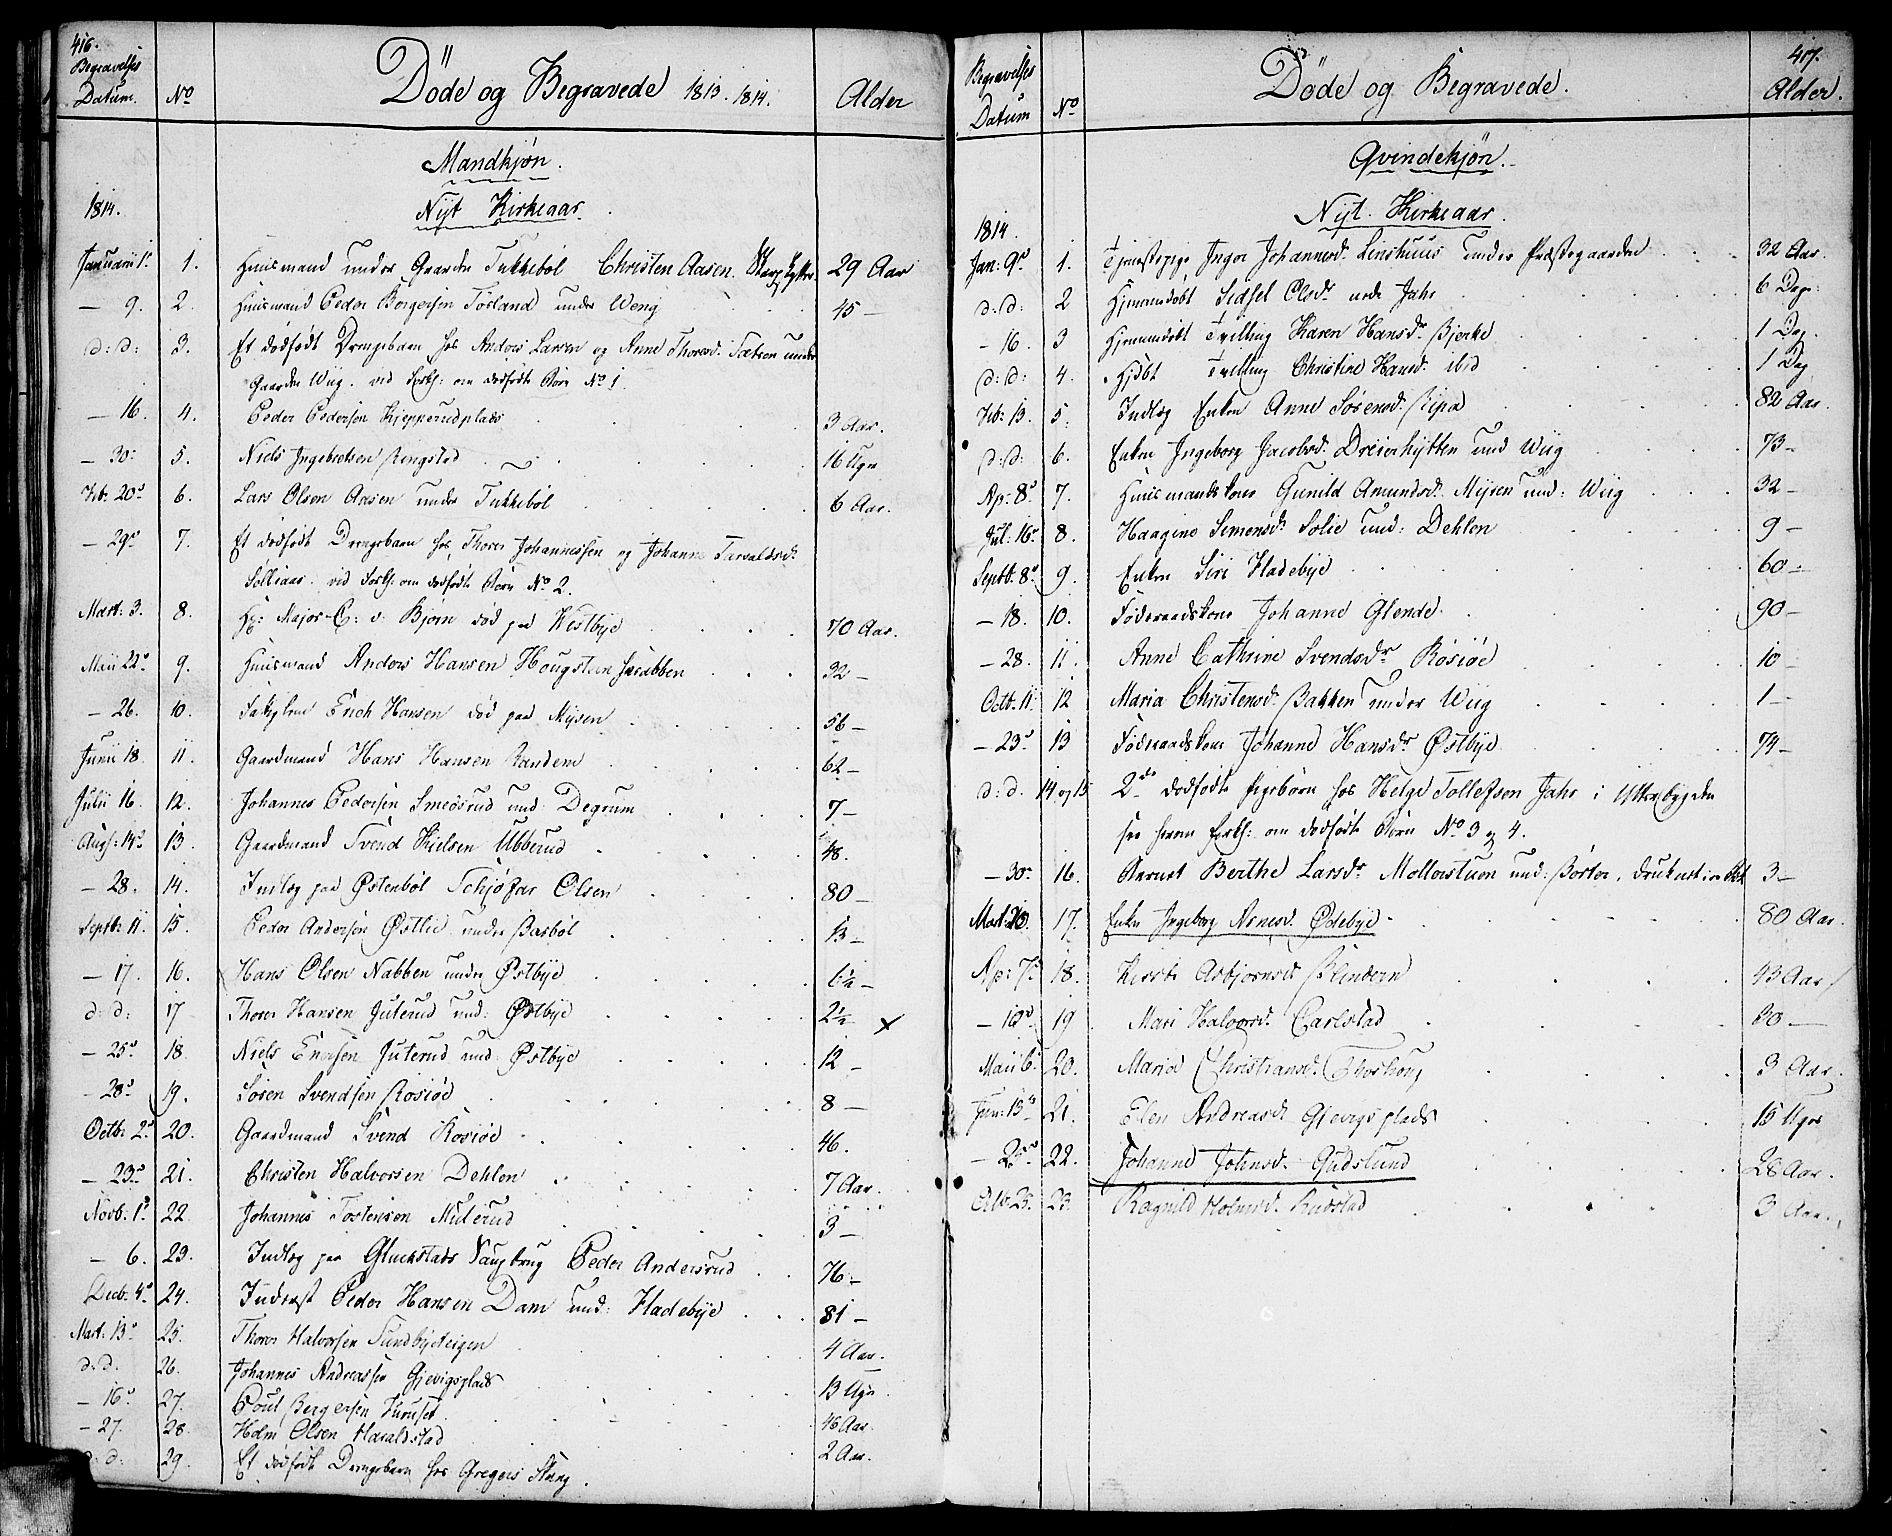 416.
Begravelses Datum. No Döde og Begravede 1813. 1814. Alder
Mandkjøn.
1814. Nyt Kirkeaar.
Januarii 1. 1. Huusmand under Gaarden Tukkebøl Christen Aasen. 29 Aar
— 9. 2. Huusmand Peder Borgersen Torland under Weng 45 —
d: d: 3. Et dödfödt Drengebarn hos Anders Larsen og Anne Thoresd. under
Gaarden Wiig. vid Forts: om dødfødte Børn No 1.
— 16. 4. Peder Pedersen Kjepperudplads 3 Aar.
— 30: 5. Niels Ingebretsen Ringstad 16 Ugr
Feb: 20d 6. Lars Olsen Aasen under Tukkebøl 6 Aar.
— 29d 7. Et dödfödt Drengebarn hos Thores Johannessen og Johanne Torvaldsd.
vid Forts: om dødfødte Børn No 2.
Mart: 3. 8. Hr: Major C: v. Bjørn död paa Westbye 70 Aar.
Maii 22d 9. Huusmand Anders Hansen Hougsteen 32 —
— 26. 10. Erich Hansen död paa Mysen 56 —
Junii 18 11. Gaardmand Hans Hansen Randem 62 —
Julii 16. 12. Johannes Pedersen Smedsrud und: Degrum 7 —
Aug: 14d 13. Gaardmand Svend Nielsen Ubberud 48.
— 28. 14. Indlæg paa Østenbøl Olsen 80 —
Septb: 11. 15. Peder Andersen Østlie under Basbøl 13 —
— 17. 16. Hans Olsen Nabben under Østbye 6½ —
d: d: 17 Thores Hansen Juterud und: Østbye 2½ x
— 25d 18. Niels Enersen Juterud und: Østbye 12 —
— 28d 19. Sören Svendsen Rosiøe 8 —
Octb: 2d 20. Gaardmand Svend Rosiøe 46.
— 23d 21. Christen Halvorsen Dehlen 7 Aar.
Novb: 1d 22. Johannes Tostensen Muterud 3 —
— 6. 23. Indlæg paa Gluckstads Saugbrug Peder Andersrud 76 —
Decb: 4d 24. Inderst Peder Hansen Dam und: Hladebye 81 —
Mart: 13d 25. Thores Halvorsen Sundbyeeigen 4 Aar.
d: d. 26. Johannes Andreassen Gjevigsplads 13 Ugr
— 16d 27. Poul Bergersen Furuset 46 Aar.
— 27. 28. Holm Olsen Haraldstad 2 Aar.
d: d: 29. Et dödfödt Drengebarn hos Gregers Stang.
417.
Begravelses Datum No Döde og Begravede. Alder.
Qvindekjön.
Nyt Kirkeaar.
1814.
Jan: 9d 1. Tjenestepige Inger Johannesd. Linshuus under Præstegaarden 32 Aar.
d: d: 2 Hjemmedøbt Sidsel Olsdr. nede Jahr 6 Dage
— 16. 3 Hjemmedøbt Tvilling Karen Hansdr. Bjerke 1 Dag.
d: d: 4. Hjdbt Tvilling Christine Hansd. ibid 1 Dag
Feb: 13. 5. Indlæg Enken Anne Sörensd. Ripa 82 Aar.
d: d: 6. Enken Ingeborg Jacobsd. Dreierhytten und Wiig 73 —
Ap: 8d 7. Huusmandskone Gunild Amundsd. Mysen und: Wiig 32 —
Jul: 16d 8. Haagine Simensd. Solie und: Dehlen 9 —
Septb: 8d 9. Enken Siri Hladebye 60 —
— 18. 10. Föderaadskone Johanne Glende 90 —
— 28. 11. Anne Cathrine Svendsdr. Rosiøe 10 —
Octb: 11. 12 Maria Christensd. Bakken under Wiig 1 —
— 23d 13 Föderaadskone Johanne Hansdr. Østbye 74 —
d: d. 14 og 15 2de dødfødte Pigebørn hos Helge Tollefson Jahr i Ytterbygden
see herom Forts: om dødfødte Børn No 3 og 4.
— 30. 16. Barnet Berthe Larsdr. Mollerstuen und: Børter, druknet i en Bek 3 —
Mart: 20. 17. Enken Ingeborg Arnesd. Ødebye 80 Aar.
Ap: 7d 18. Kirsti Asbjörnsd. Blindern 43 Aar
— 10d 19 Mari Halvorsd. Carlstad 80 —
Maii 6. 20. Maria Christiansd. Thoshoug 3 Aar.
Jun: 15d 21. Elen Andreasd. Gjevigsplads 15 Ugr
— 25d 22. Johanne Johnsd. Gudslund 28 Aar.
23. 23. Ragnild Holmsd. Rudstad 3 Aar.